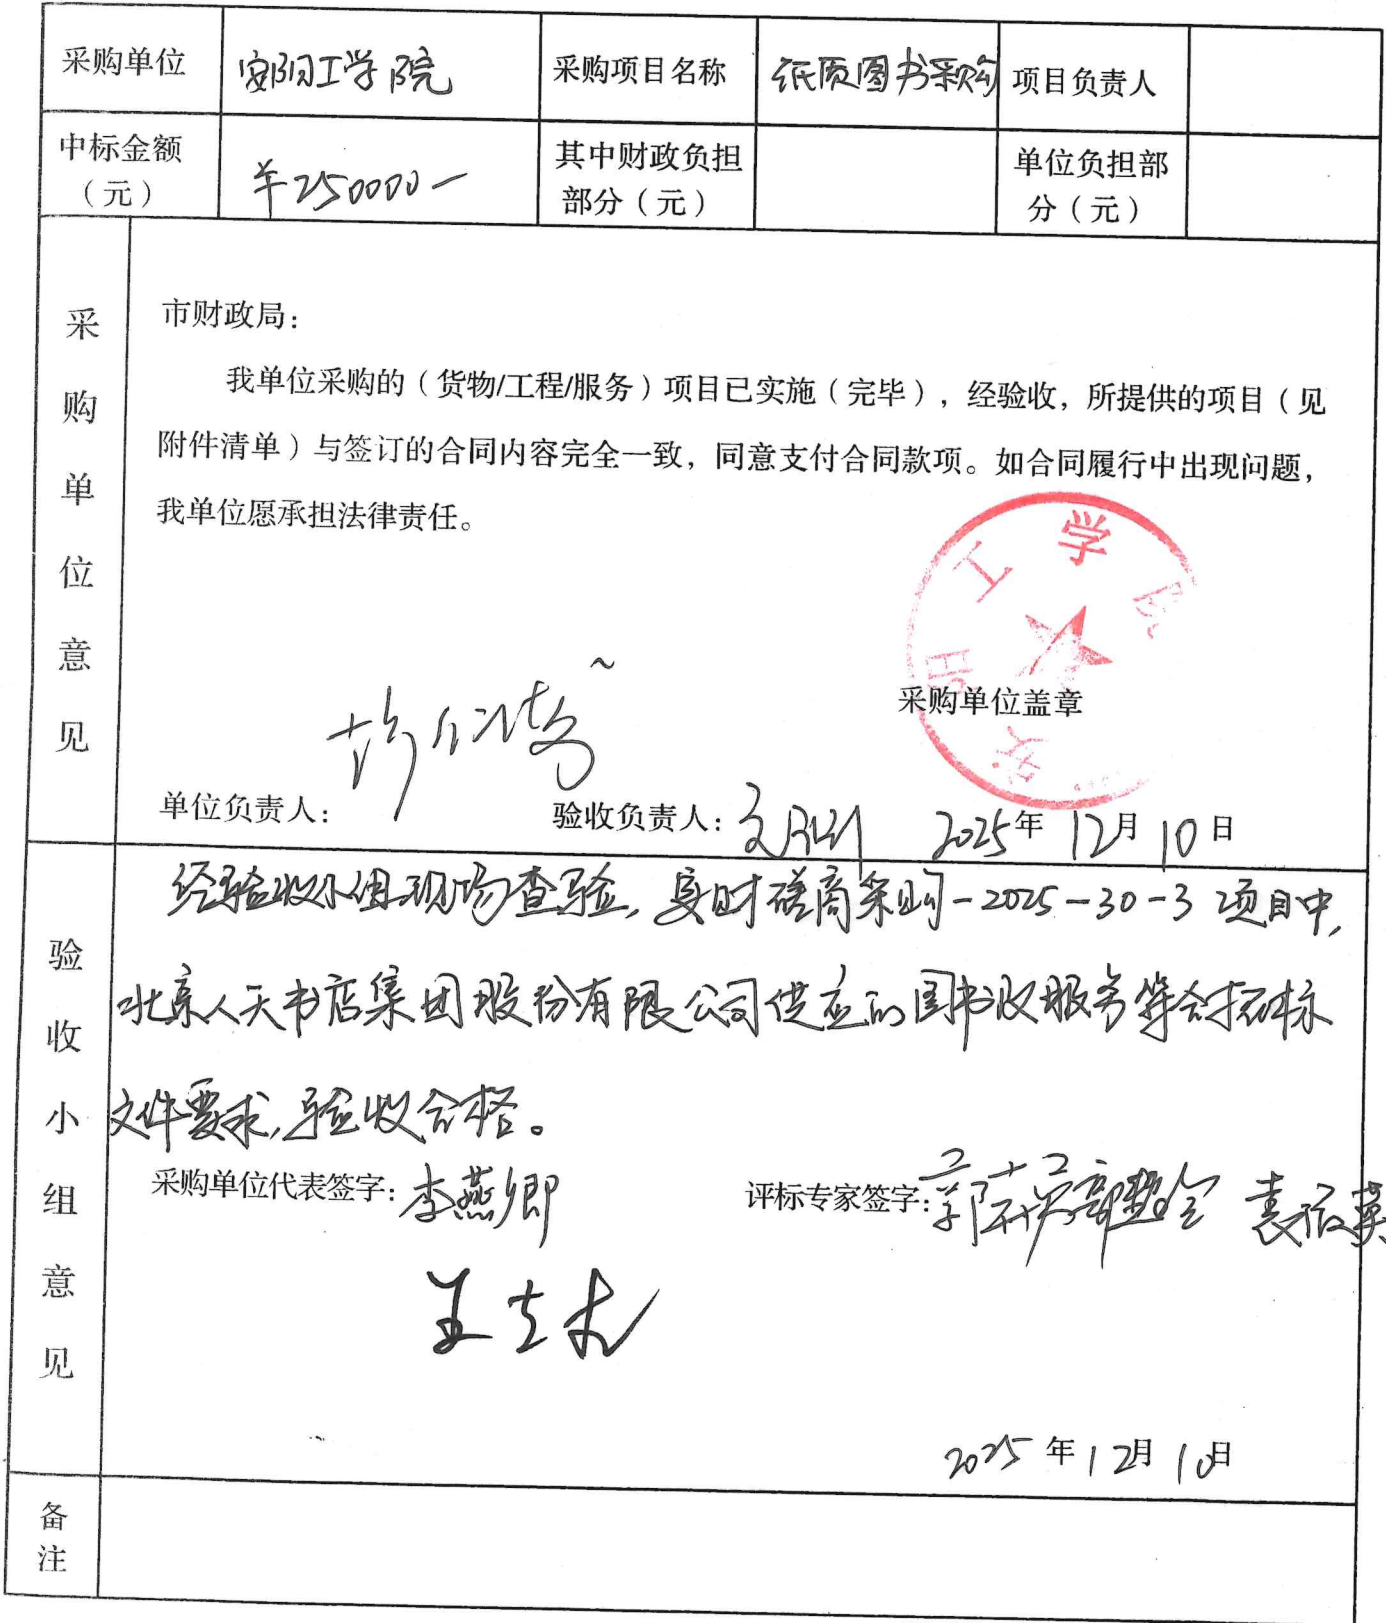 采购单位 安阳工学院 采购项目名称 纸质图书采购 项目负责人
中标金额（元） ￥250000— 其中财政负担部分（元） 单位负担部分（元）
采购单位意见
市财政局：
我单位采购的（货物/工程/服务）项目已实施（完毕），经验收，所提供的项目（见
附件清单）与签订的合同内容完全一致，同意支付合同款项。如合同履行中出现问题，
我单位愿承担法律责任。
安阳工学院
采购单位盖章
单位负责人： 验收负责人： 2025年12月10日
验收小组意见
经验收小组现场查验，安财磋商采购-2025-30-3项目中，
北京人天书店集团股份有限公司供应的图书及服务符合招标
文件要求，验收合格。
采购单位代表签字：李燕卿 评标专家签字：
2025年12月10日
备注